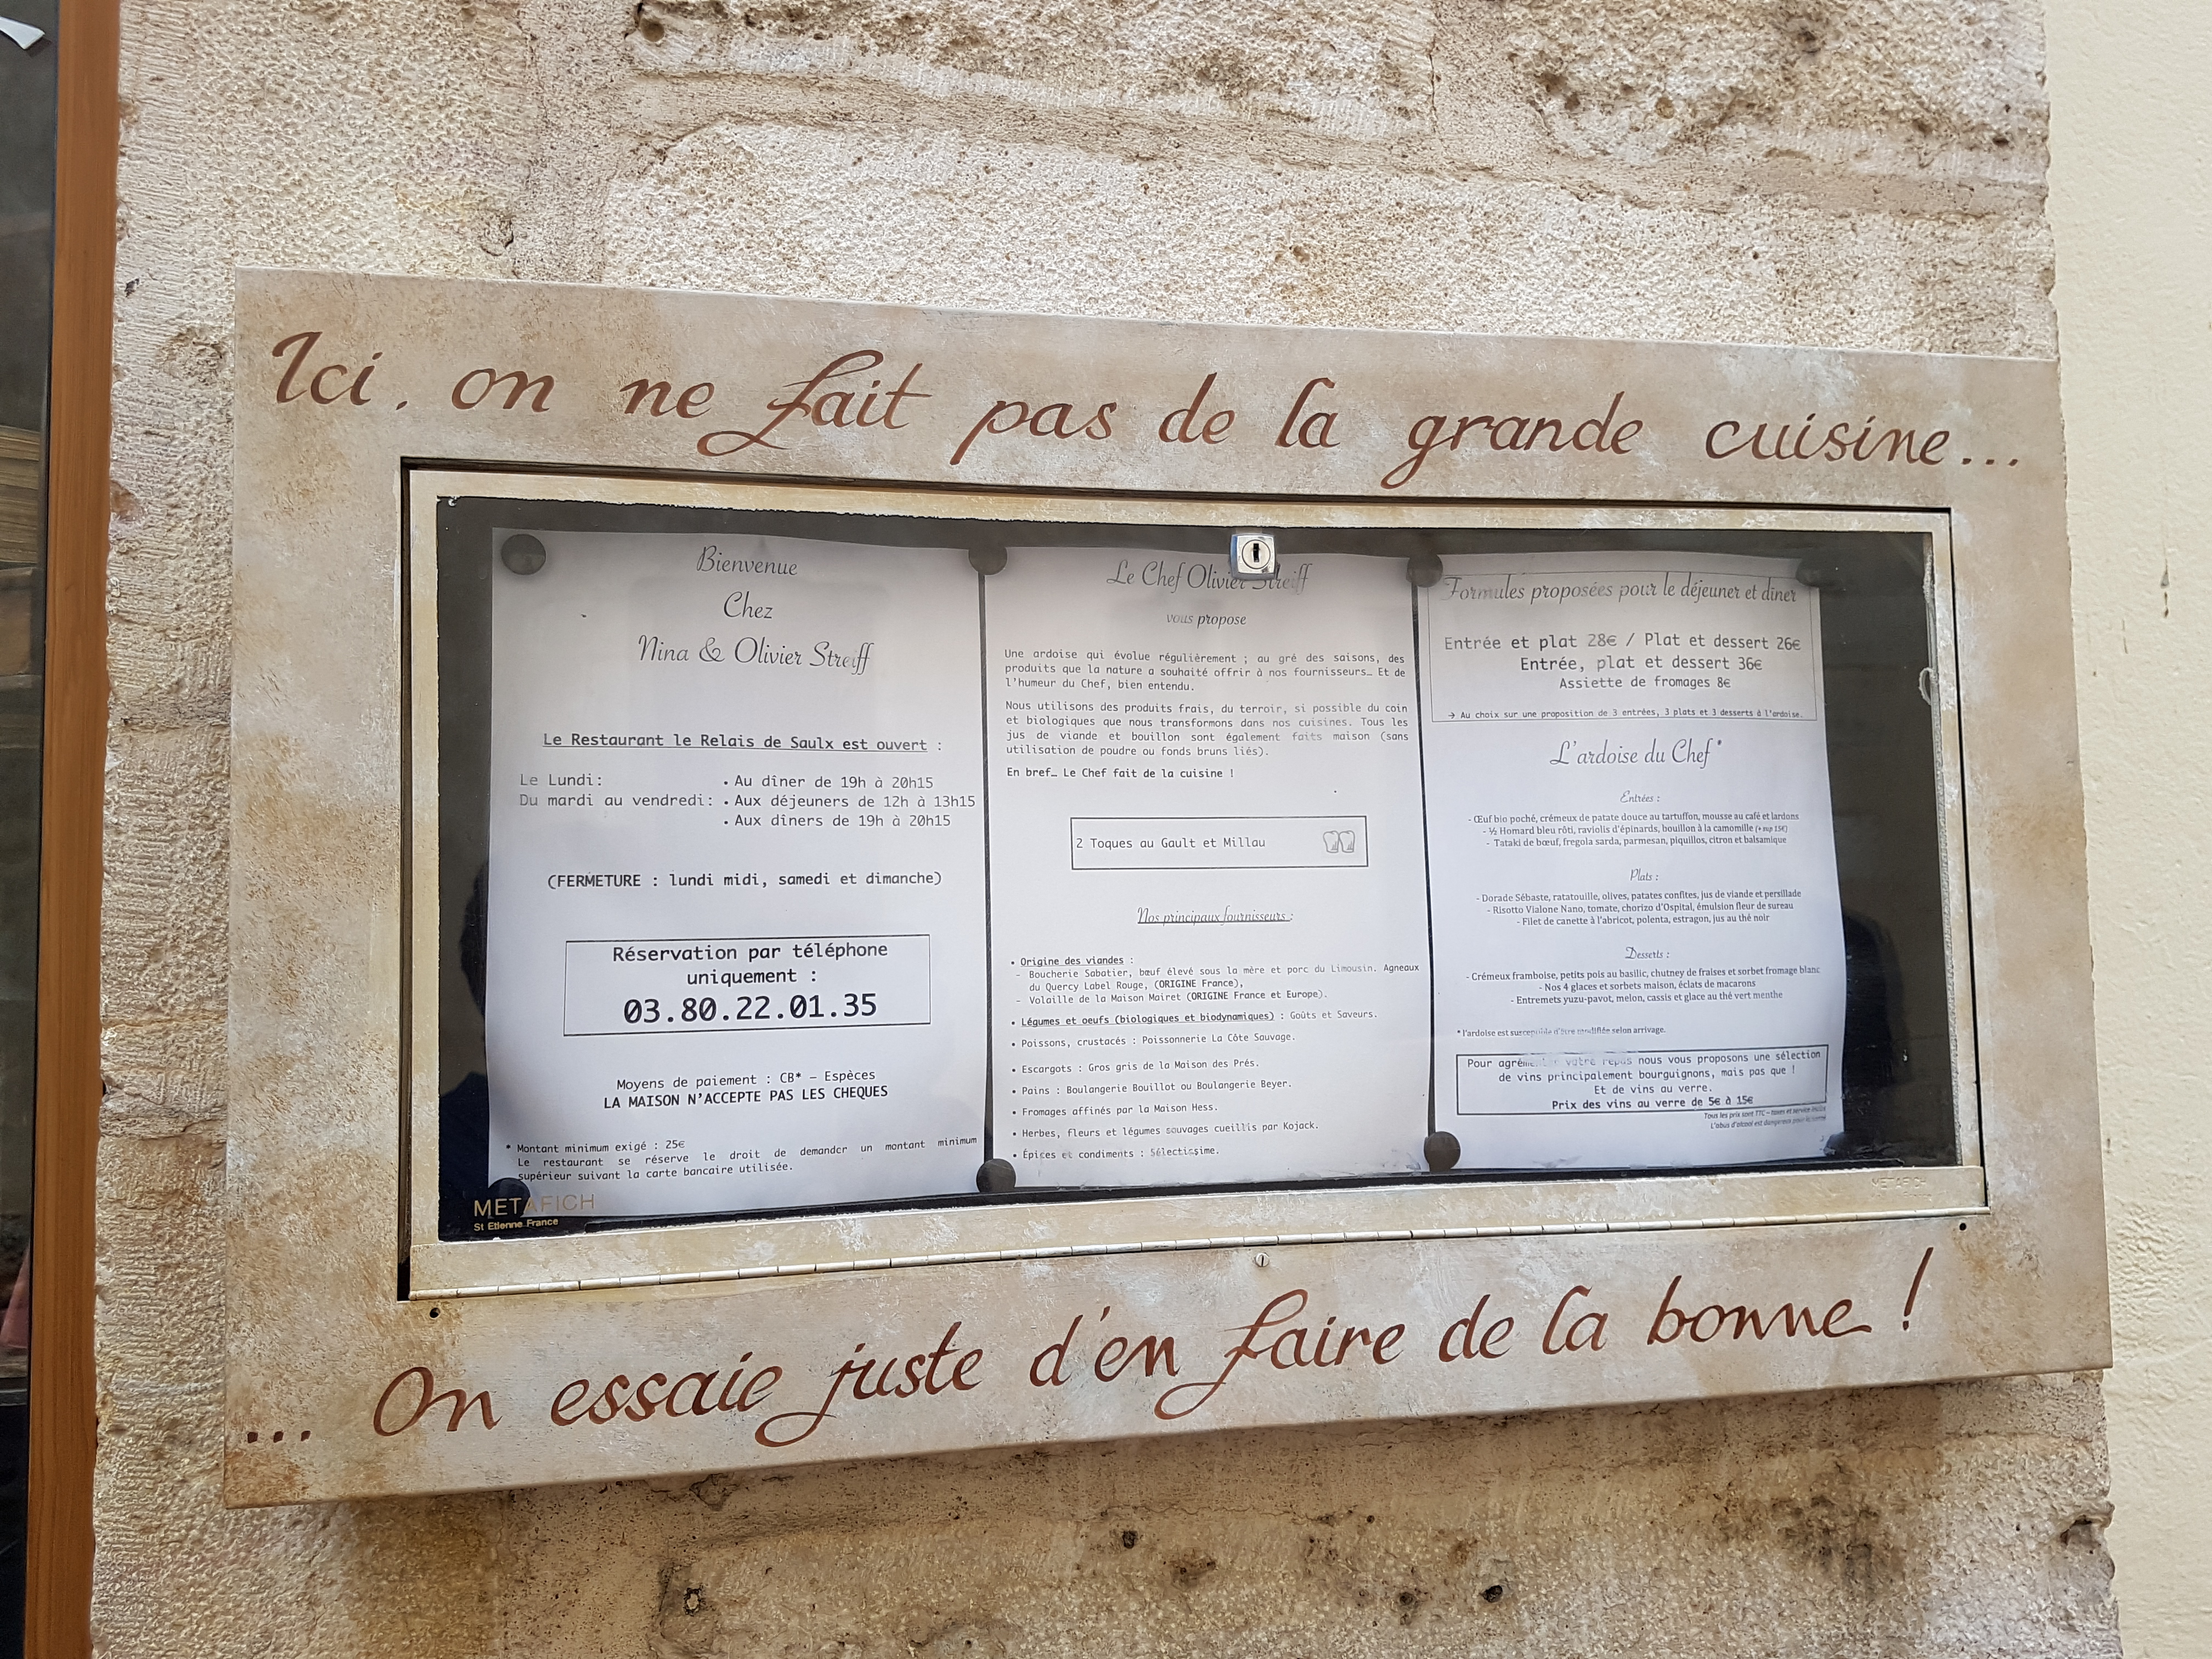 Ici, on ne fait pas de la grande cuisine...
Bienvenue
Chez
Nina & Olivier Streiff
Le Restaurant le Relais de Saulx est ouvert :
Le Lundi: • Au dîner de 19h à 20h15
Du mardi au vendredi: • Aux déjeuners de 12h à 13h15
• Aux dîners de 19h à 20h15
(FERMETURE : lundi midi, samedi et dimanche)
Réservation par téléphone
uniquement :
03.80.22.01.35
Moyens de paiement : CB* – Espèces
LA MAISON N'ACCEPTE PAS LES CHEQUES
* Montant minimum exigé : 25€
Le restaurant se réserve le droit de demander un montant minimum
supérieur suivant la carte bancaire utilisée.
METAFICH
St Etienne France
Le Chef Olivier Streiff
vous propose
Une ardoise qui évolue régulièrement ; au gré des saisons, des
produits que la nature a souhaité offrir à nos fournisseurs… Et de
l'humeur du Chef, bien entendu.
Nous utilisons des produits frais, du terroir, si possible du coin
et biologiques que nous transformons dans nos cuisines. Tous les
jus de viande et bouillon sont également faits maison (sans
utilisation de poudre ou fonds bruns liés).
En bref… Le Chef fait de la cuisine !
2 Toques au Gault et Millau
Nos principaux fournisseurs :
• Origine des viandes :
– Boucherie Sabatier, bœuf élevé sous la mère et porc du Limousin. Agneaux
du Quercy Label Rouge, (ORIGINE France),
– Volaille de la Maison Mairet (ORIGINE France et Europe).
• Légumes et oeufs (biologiques et biodynamiques) : Goûts et Saveurs.
• Poissons, crustacés : Poissonnerie La Côte Sauvage.
• Escargots : Gros gris de la Maison des Prés.
• Pains : Boulangerie Bouillot ou Boulangerie Beyer.
• Fromages affinés par la Maison Hess.
• Herbes, fleurs et légumes sauvages cueillis par Kojack.
• Épices et condiments : Sélectissime.
Formules proposées pour le déjeuner et dîner
Entrée et plat 28€ / Plat et dessert 26€
Entrée, plat et dessert 36€
Assiette de fromages 8€
→ Au choix sur une proposition de 3 entrées, 3 plats et 3 desserts à l'ardoise.
L'ardoise du Chef *
Entrées :
- Œuf bio poché, crémeux de patate douce au tartuffon, mousse au café et lardons
- ½ Homard bleu rôti, raviolis d'épinards, bouillon à la camomille (+ sup 15€)
- Tataki de bœuf, fregola sarda, parmesan, piquillos, citron et balsamique
Plats :
- Dorade Sébaste, ratatouille, olives, patates confites, jus de viande et persillade
- Risotto Vialone Nano, tomate, chorizo d'Ospital, émulsion fleur de sureau
- Filet de canette à l'abricot, polenta, estragon, jus au thé noir
Desserts :
- Crémeux framboise, petits pois au basilic, chutney de fraises et sorbet fromage blanc
- Nos 4 glaces et sorbets maison, éclats de macarons
- Entremets yuzu-pavot, melon, cassis et glace au thé vert menthe
* l'ardoise est susceptible d'être modifiée selon arrivage.
Pour agrémenter votre repas nous vous proposons une sélection
de vins principalement bourguignons, mais pas que !
Et de vins au verre.
Prix des vins au verre de 5€ à 15€
Tous les prix sont TTC – taxes et service inclus
L'abus d'alcool est dangereux pour la santé
METAFICH
... On essaie juste d'en faire de la bonne !